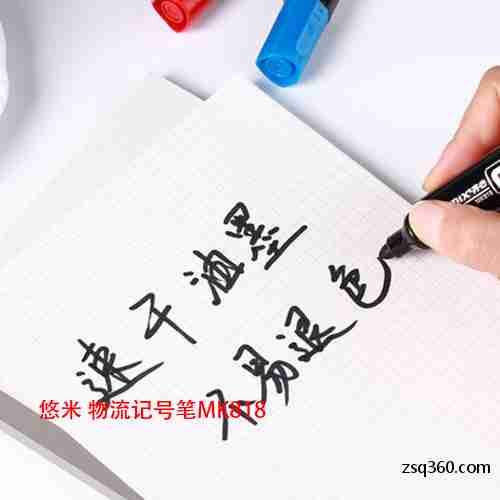 速干油墨
不易退色
悠米 物流记号笔MK818
zsq360.com